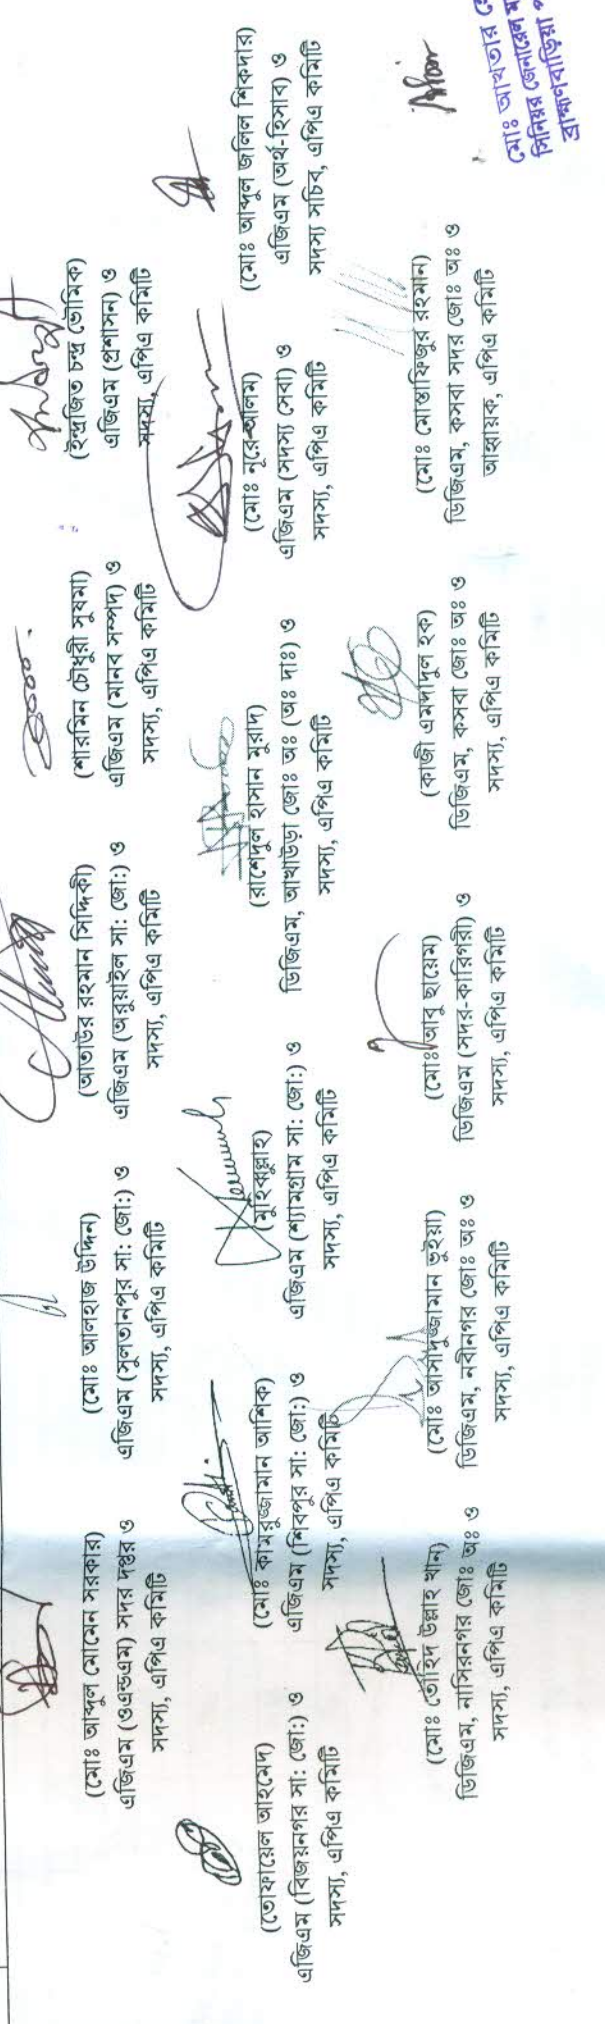 (মোঃ আব্দুল মোমেন সরকার)
এজিএম (ওএন্ডএম) সদর দপ্তর ও
সদস্য, এপিএ কমিটি
(মোঃ আলহাজ উদ্দিন)
এজিএম (সুলতানপুর সা: জো:) ও
সদস্য, এপিএ কমিটি
(আতাউর রহমান সিদ্দিকী)
এজিএম (অরুয়াইল সা: জো:) ও
সদস্য, এপিএ কমিটি
(শারমিন চৌধুরী সুষমা)
এজিএম (মানব সম্পদ) ও
সদস্য, এপিএ কমিটি
(ইন্দ্রজিত চন্দ্র ভৌমিক)
এজিএম (প্রশাসন) ও
সদস্য, এপিএ কমিটি
(তোফায়েল আহমেদ)
এজিএম (বিজয়নগর সা: জো:) ও
সদস্য, এপিএ কমিটি
(মোঃ কামরুজ্জামান আশিক)
এজিএম (শিবপুর সা: জো:) ও
সদস্য, এপিএ কমিটি
(মুহিব্বুল্লাহ)
এজিএম (শ্যামগ্রাম সা: জো:) ও
সদস্য, এপিএ কমিটি
(রাশেদুল হাসান মুরাদ)
ডিজিএম, আখাউড়া জোঃ অঃ (অঃ দাঃ) ও
সদস্য, এপিএ কমিটি
(মোঃ নূরে-আলম)
এজিএম (সদস্য সেবা) ও
সদস্য, এপিএ কমিটি
(মোঃ আব্দুল জলিল শিকদার)
এজিএম (অর্থ-হিসাব) ও
সদস্য সচিব, এপিএ কমিটি
(মোঃ তৌহিদ উল্লাহ খান)
ডিজিএম, নাসিরনগর জোঃ অঃ ও
সদস্য, এপিএ কমিটি
(মোঃ আসাদুজ্জামান ভূইয়া)
ডিজিএম, নবীনগর জোঃ অঃ ও
সদস্য, এপিএ কমিটি
(মোঃ আবু ছায়েম)
ডিজিএম (সদর-কারিগরী) ও
সদস্য, এপিএ কমিটি
(কাজী এমদাদুল হক)
ডিজিএম, কসবা জোঃ অঃ ও
সদস্য, এপিএ কমিটি
(মোঃ মোস্তাফিজুর রহমান)
ডিজিএম, কসবা সদর জোঃ অঃ ও
আহ্বায়ক, এপিএ কমিটি
মোঃ আখতার
সিনিয়র জেনারেল
ব্রাহ্মণবাড়িয়া